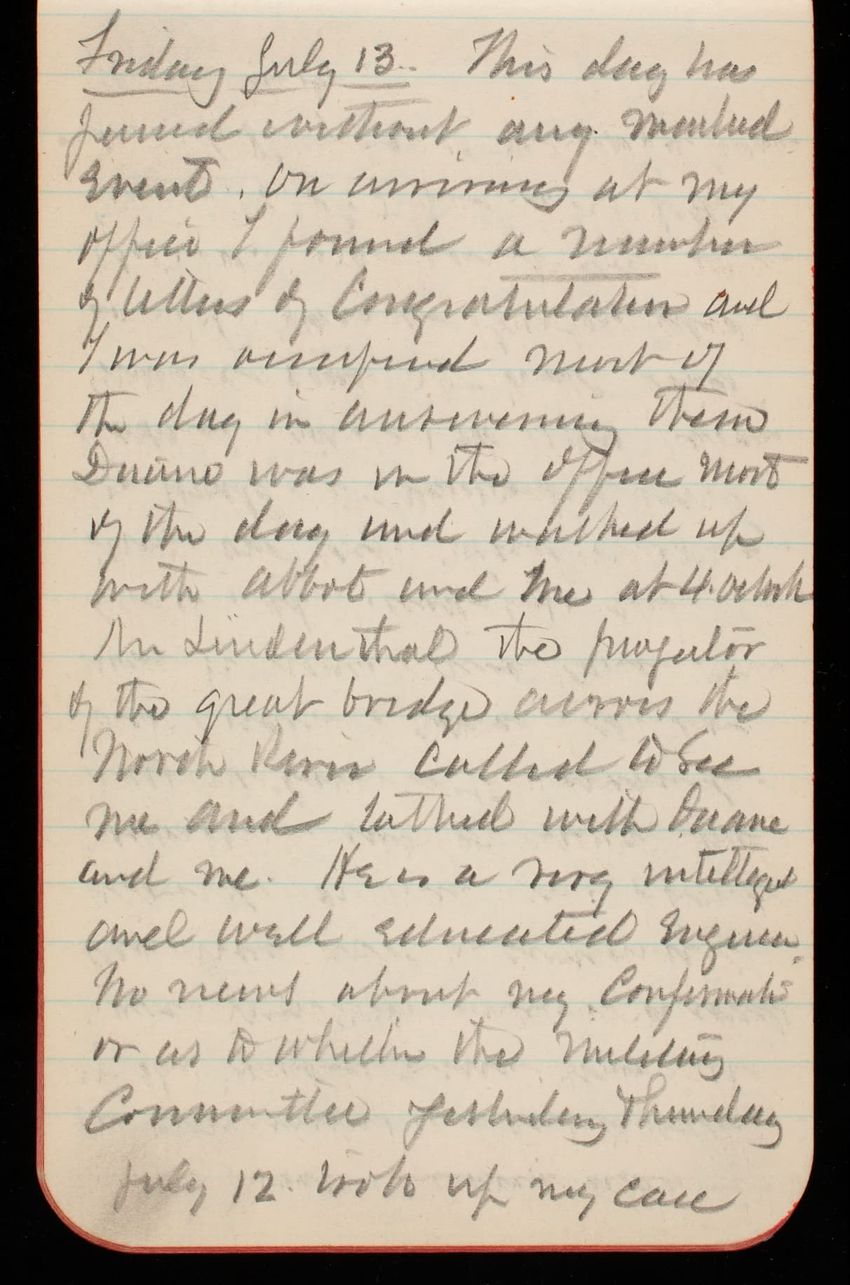 Friday July 13. This day has
passed without any marked
event. On arriving at my
office I found a number
of letters of Congratulation and
I was occupied most of
the day in answering them
Duane was in the office most
of the day and walked up
with Abbot and me at 4. oclock
Mr Lindenthal the projector
of the great bridge across the
North River called to see
me and talked with Duane
and me. He is a very intelligent
and well educated Engineer.
No news about my Confirmation
or as to whether the Military
Committee yesterday Thursday
July 12. took up my case